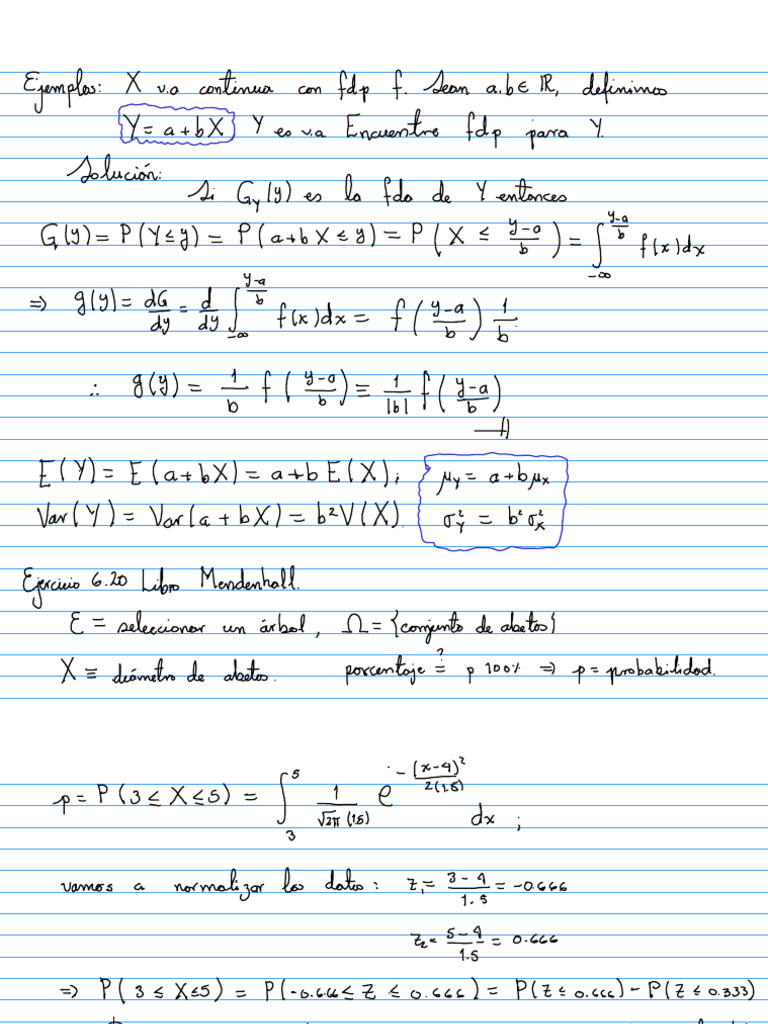 Ejemplos: X v.a continua con fdp f. Sean a.b ∈ ℝ, definimos
Y = a + bX Y es v.a Encuentre fdp para Y.
Solución:
Si G_Y(y) es la fda de Y entonces
G(y) = P(Y ≤ y) = P(a+bX ≤ y) = P(X ≤ (y-a)/b) = ∫_{-∞}^{(y-a)/b} f(x)dx
⇒ g(y) = dG/dy = d/dy ∫_{-∞}^{(y-a)/b} f(x)dx = f((y-a)/b) 1/b.
∴ g(y) = 1/b f((y-a)/b) ≡ 1/|b| f((y-a)/b)
E(Y) = E(a+bX) = a+b E(X); μ_Y = a+bμ_X
Var(Y) = Var(a+bX) = b²V(X). σ²_Y = b²σ²_X
Ejercicio 6.20 Libro Mendenhall.
Ɛ = seleccionar un árbol, Ω = {conjunto de abetos}
X ≡ diámetro de abetos. porcentaje ≟ p 100% ⇒ p = probabilidad.
p = P(3 ≤ X ≤ 5) = ∫_3^5 1/(√2π (1.5)) e^{-(x-4)²/2(1.5)} dx ;
vamos a normalizar los datos: z₁ = (3-4)/1.5 = -0.666
z₂ = (5-4)/1.5 = 0.666
⇒ P(3 ≤ X ≤ 5) = P(-0.666 ≤ Z ≤ 0.666) = P(Z ≤ 0.666) - P(Z ≤ 0.333)